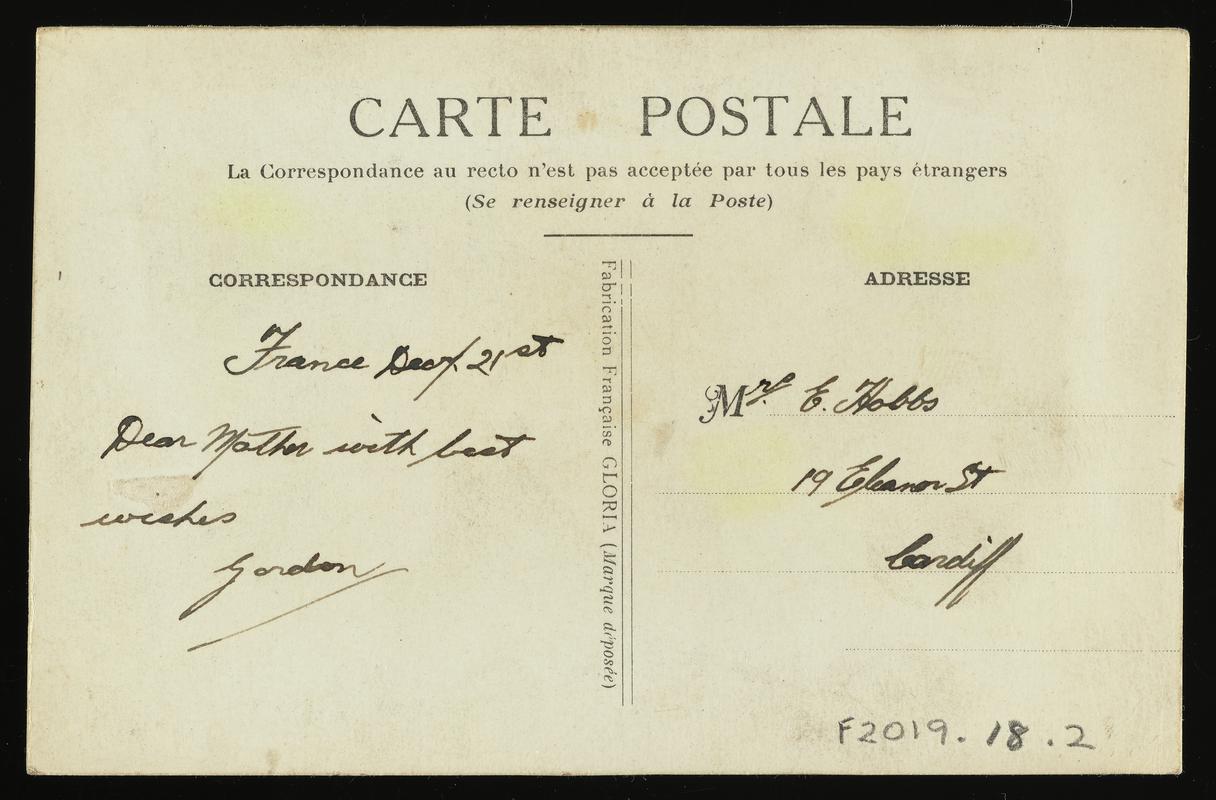 CARTE POSTALE
La Correspondance au recto n'est pas acceptée par tous les pays étrangers
(Se renseigner à la Poste)
CORRESPONDANCE
France Dec/. 21st
Dear Mother with best
wishes
Gordon
Fabrication Française GLORIA (Marque déposée)
ADRESSE
Mrs. E. Hobbs
19 Eleanor St
Cardiff
F2019.18.2